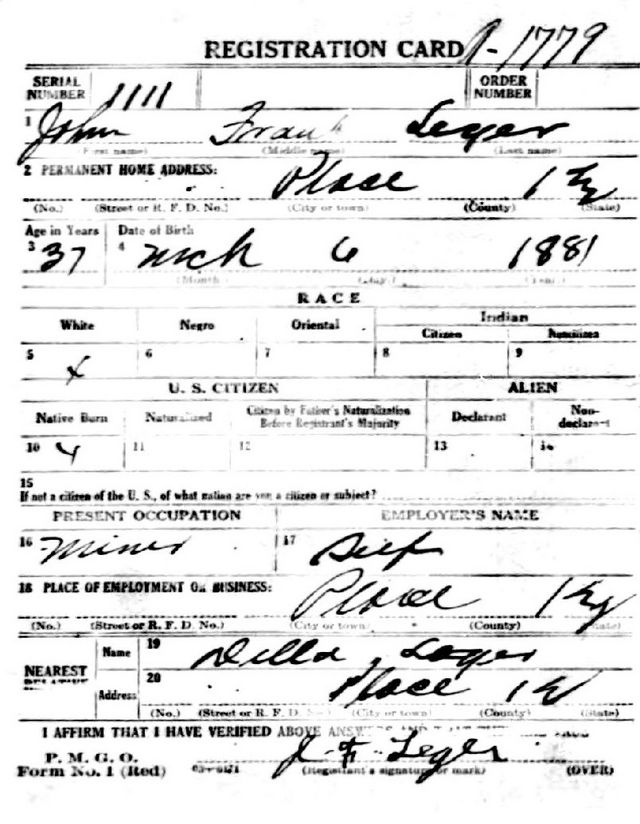 REGISTRATION CARD A-1779
SERIAL NUMBER 1111 ORDER NUMBER
1 John Frank Leger
(First name) (Middle name) (Last name)
2 PERMANENT HOME ADDRESS:
Place Ky
(No.) (Street or R. F. D. No.) (City or town) (County) (State)
Age in Years Date of Birth
3 37 4 Mch 6 1881
(Month) (Day) (Year)
RACE
White Negro Oriental Indian
Citizen Noncitizen
5 x 6 7 8 9
U. S. CITIZEN ALIEN
Native Born Naturalized Citizen by Father's Naturalization Before Registrant's Majority Declarant Non-declarant
10 x 11 12 13 14
15
If not a citizen of the U. S., of what nation are you a citizen or subject?
PRESENT OCCUPATION EMPLOYER'S NAME
16 Miner 17 Self
18 PLACE OF EMPLOYMENT OR BUSINESS:
Place Ky
(No.) (Street or R. F. D. No.) (City or town) (County) (State)
NEAREST RELATIVE Name 19 Della Leger
Address 20 Place Ky
(No.) (Street or R. F. D. No.) (City or town) (County) (State)
I AFFIRM THAT I HAVE VERIFIED ABOVE ANSWERS AND THAT THEY
P. M. G. O.
Form No. 1 (Red) J. F. Leger
(Registrant's signature or mark) (OVER)